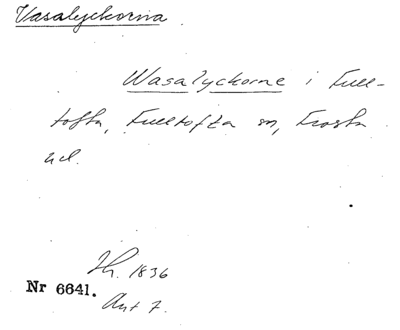 Vasalyckorna.
Wasalyckorne i Full-
tofta, Fulltofta sn, Frosta
hd.
Th. 1836
Nr 6641.
Ant 7.